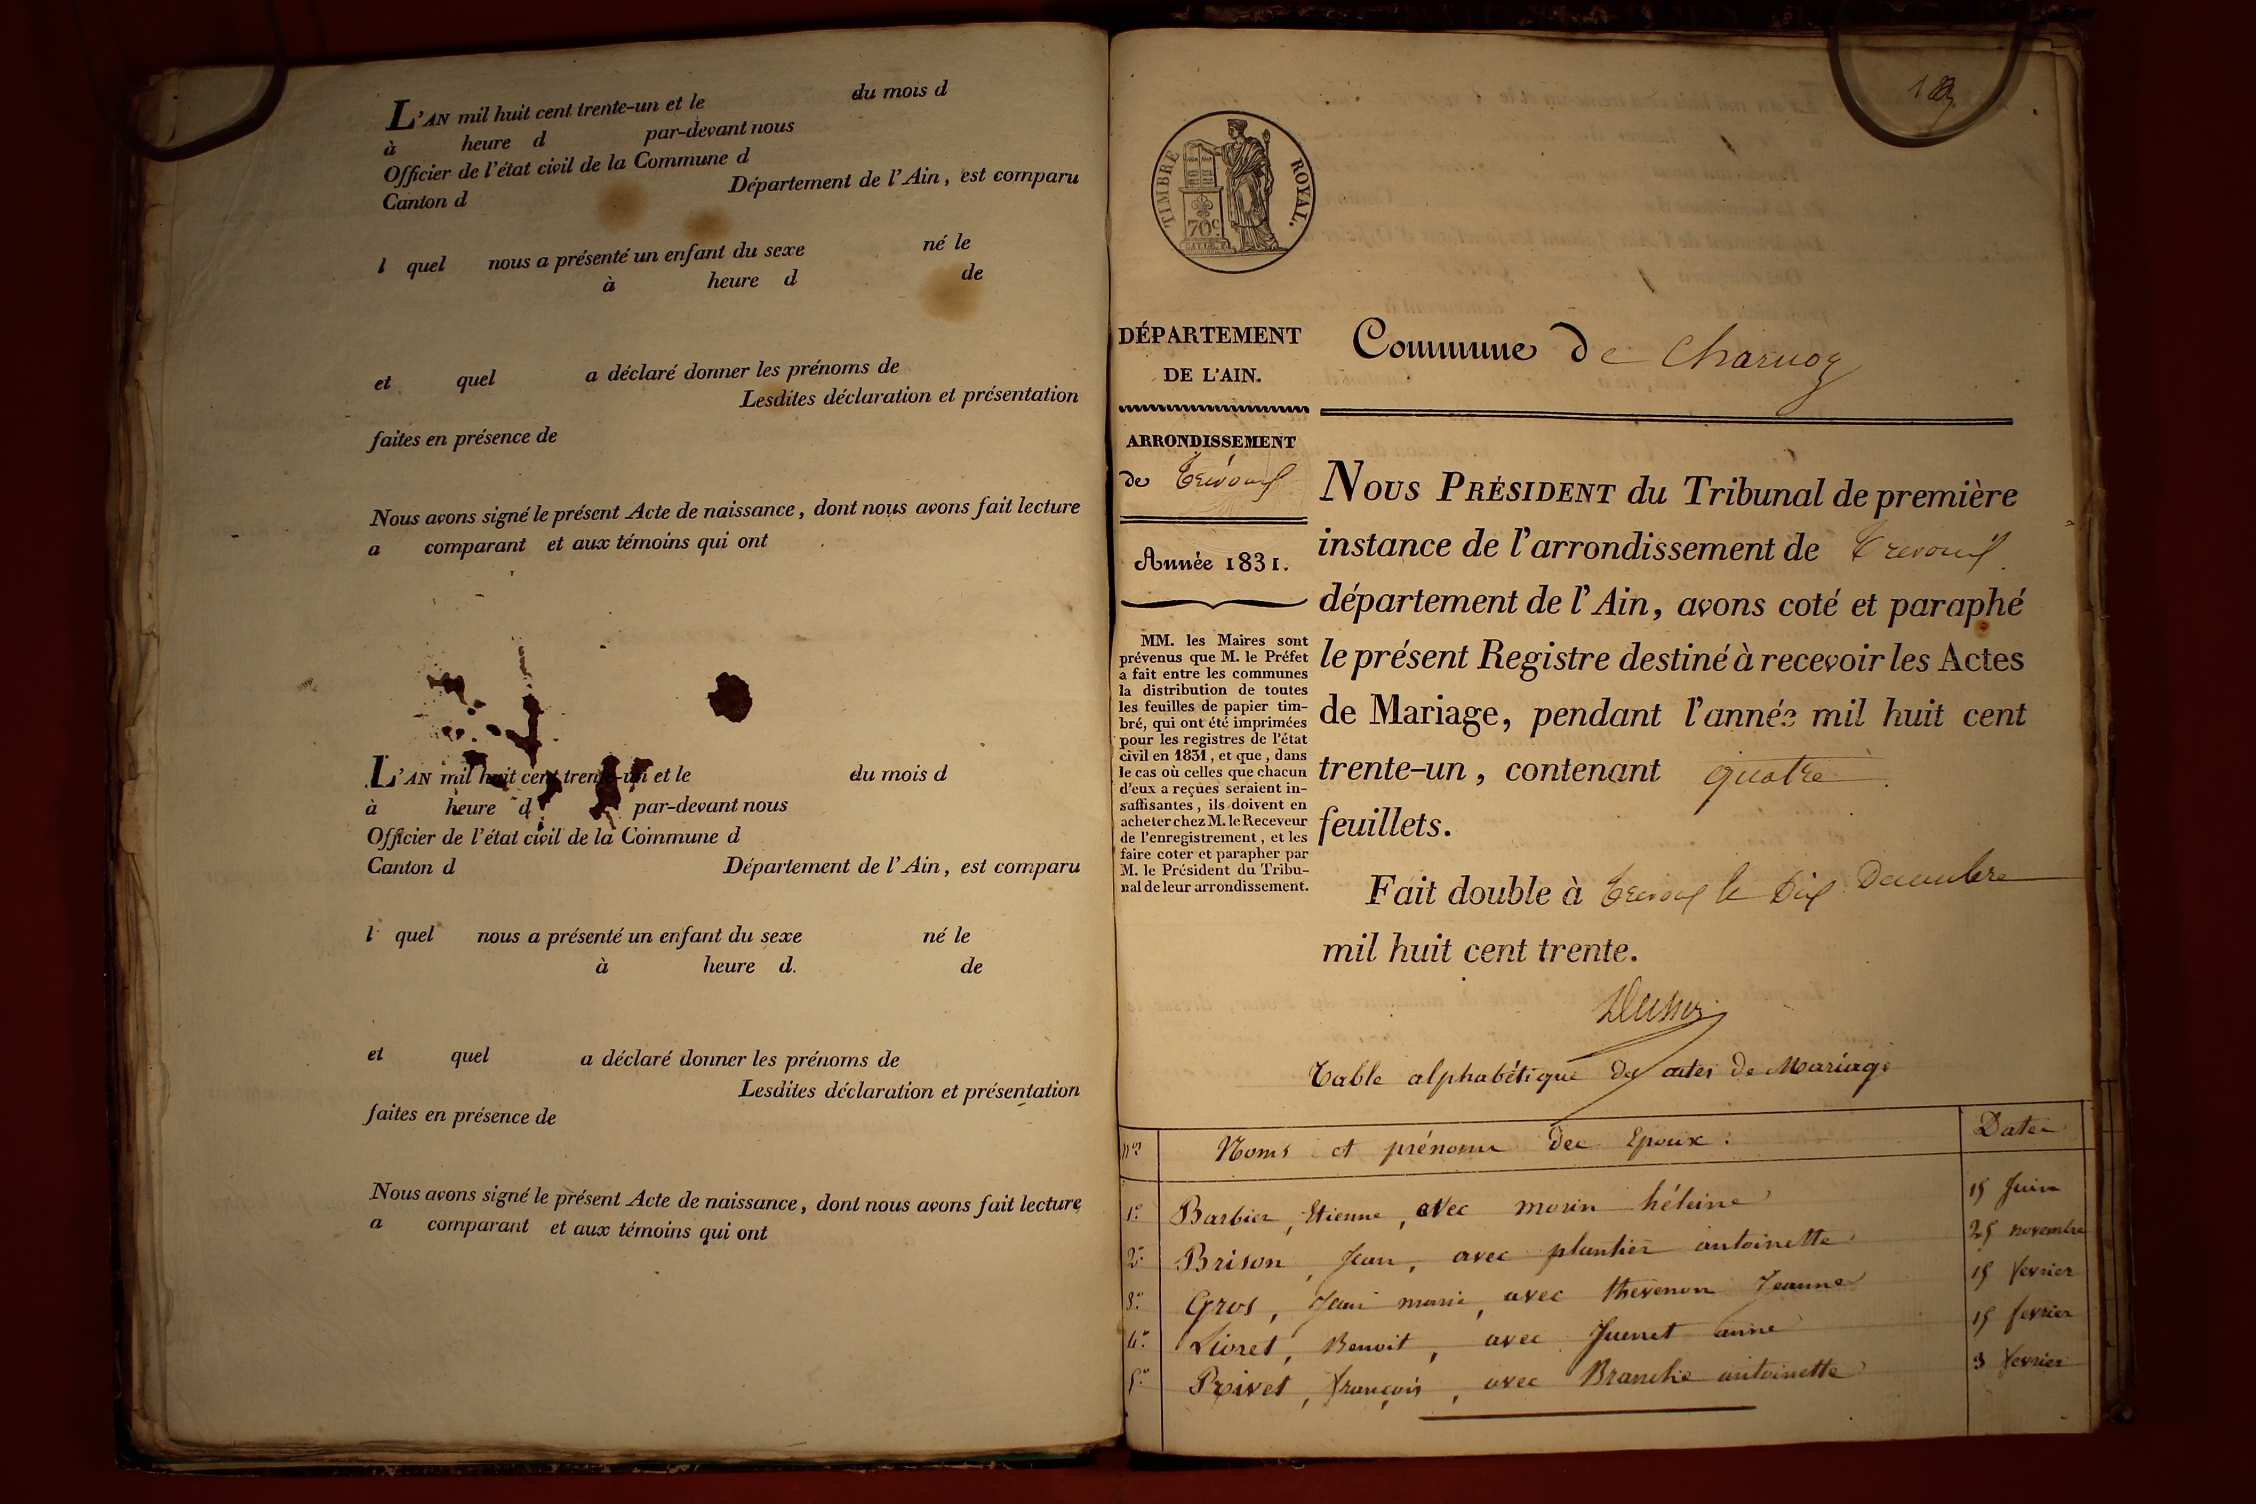 L'AN mil huit cent trente-un et le du mois d
à heure d par-devant nous
Officier de l'état civil de la Commune d
Canton d Département de l'Ain, est comparu
l quel nous a présenté un enfant du sexe né le
à heure d de
et quel a déclaré donner les prénoms de
Lesdites déclaration et présentation
faites en présence de
Nous avons signé le présent Acte de naissance, dont nous avons fait lecture
a comparant et aux témoins qui ont
L'AN mil huit cent trente-un et le du mois d
à heure d par-devant nous
Officier de l'état civil de la Commune d
Canton d Département de l'Ain, est comparu
l quel nous a présenté un enfant du sexe né le
à heure d. de
et quel a déclaré donner les prénoms de
Lesdites déclaration et présentation
faites en présence de
Nous avons signé le présent Acte de naissance, dont nous avons fait lecture
a comparant et aux témoins qui ont
TIMBRE ROYAL.
70c
DÉPARTEMENT
DE L'AIN.
ARRONDISSEMENT
de Trévoux
Année 1831.
MM. les Maires sont
prévenus que M. le Préfet
a fait entre les communes
la distribution de toutes
les feuilles de papier tim-
bré, qui ont été imprimées
pour les registres de l'état
civil en 1831, et que, dans
le cas où celles que chacun
d'eux a reçues seraient in-
suffisantes, ils doivent en
acheter chez M. le Receveur
de l'enregistrement, et les
faire coter et parapher par
M. le Président du Tribu-
nal de leur arrondissement.
Commune de Charnoz
NOUS PRÉSIDENT du Tribunal de première
instance de l'arrondissement de Trevoux
département de l'Ain, avons coté et paraphé
le présent Registre destiné à recevoir les Actes
de Mariage, pendant l'année mil huit cent
trente-un, contenant quatre
feuillets.
Fait double à Trevoux le Dix Decembre
mil huit cent trente.
Table alphabétique des actes de Mariage
nos Noms et prénoms des Epoux: Dates
1er Barbier, Etienne, avec morin héleine 15 Juin
2e Brison, Jean, avec plantier antoinette 25 novembre
3e Gros, Jean marie, avec thevenon Jeanne 15 fevrier
4e Livret, Benoit, avec Juenet anne 15 fevrier
5e Privet, françois, avec Branche antoinette 3 fevrier